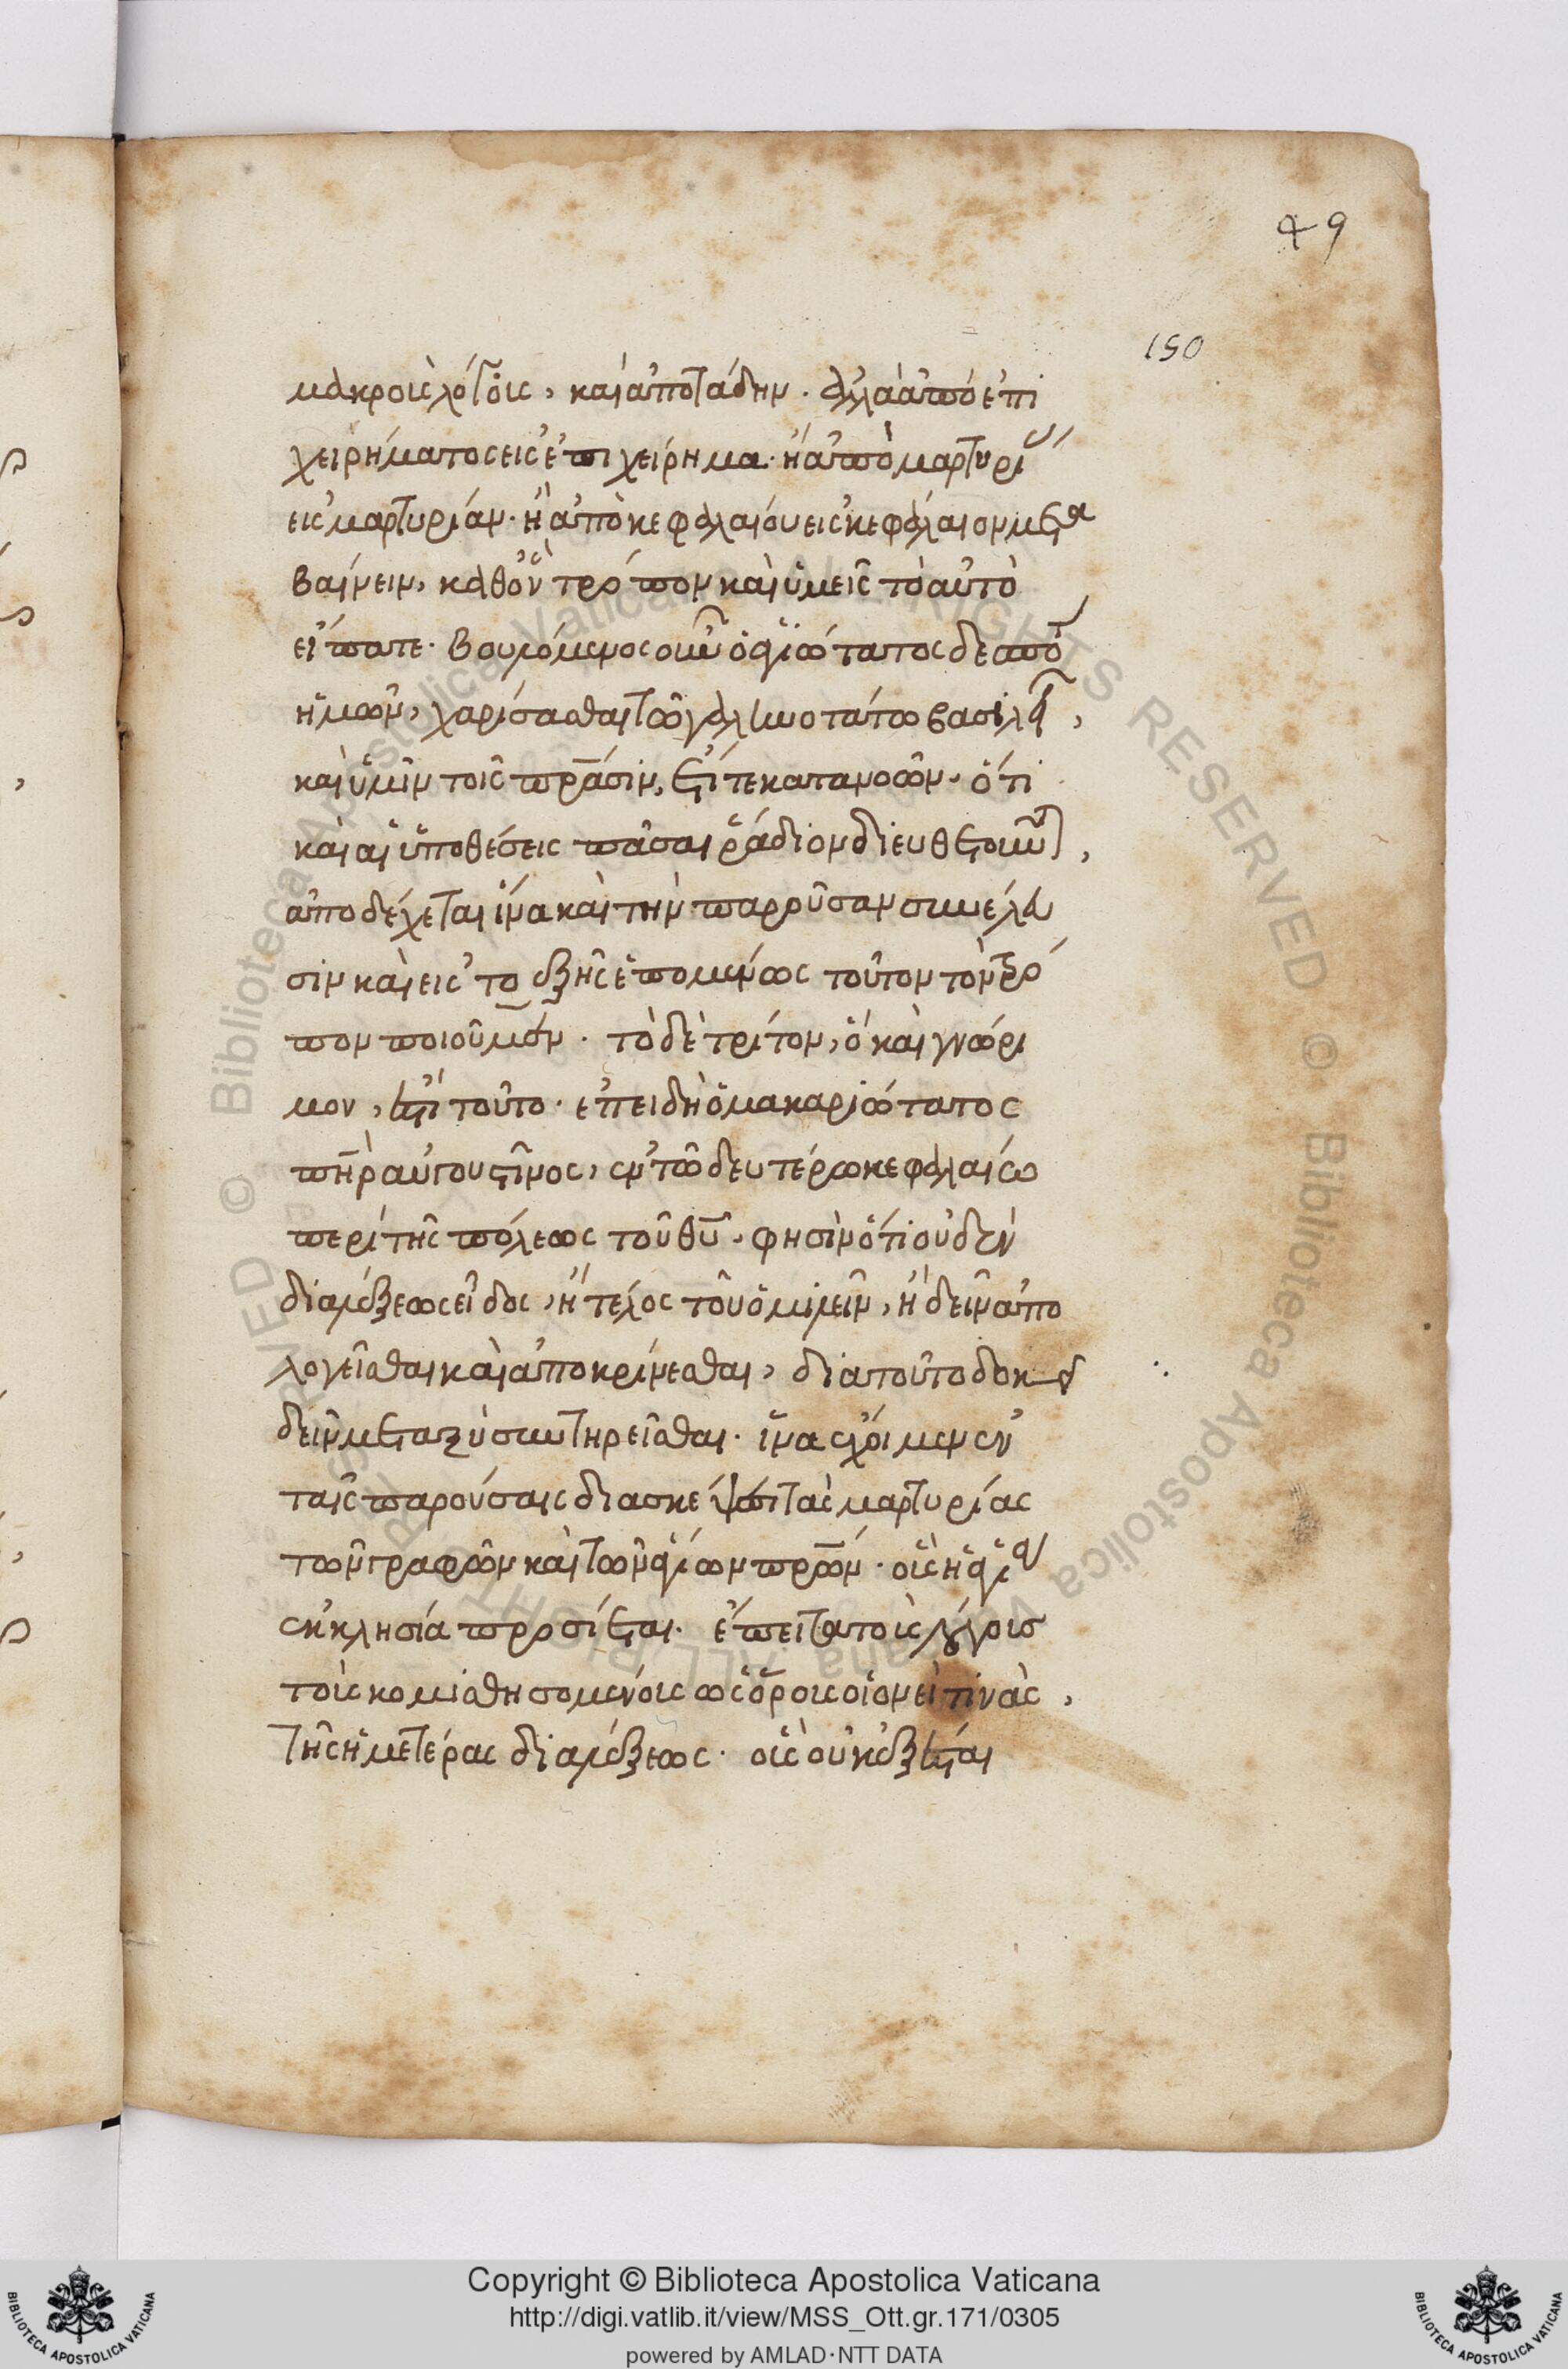 49
150
μακροῖς λόγοις, καὶ ἀποτάδην. ἀλλὰ ἀπὸ ἐπι
χειρήματος εἰς ἐπιχείρημα. ἢ ἀπὸ μαρτυρί
εἰς μαρτυρίαν. ἢ ἀπὸ κεφαλαίου εἰς κεφάλαιον μετα
βαίνειν, καθ ὃν τρόπον καὶ ὑμεῖς τὸ αὐτὸ
εἴπατε. βουλόμενος οὖν ὁ ἁγιώτατος δεσπό
ἡμῶν, χαρίσασθαι τῶ γαληνοτάτω βασιλεῖ,
καὶ ὑμῖν τοῖς πρασιν, ἔτι τε κατανοῶν. ὅτι
καὶ αἱ ὑποθέσεις πᾶσαι ῥάδιον διευθετοῦν,
ἀποδέχεται ἵνα καὶ τὴν παροῦσαν συνέλευ
σιν καὶ εἰς τὸ ἑξῆς ἑπομένως τοῦτον τὸν τρό
πον ποιοῦμεν. τὸ δὲ τρίτον, ὃ καὶ γνώρι
μον, ἐπὶ τοῦτο. ἐπειδὴ ὁ μακαριώτατος
πηρ αὐγουστῖνος, ἐν τῶ δευτέρω κεφαλαίω
περὶ τῆς πόλεως τοῦ θυ. φησὶν ὅτι οὐδὲν
διαλέξεως εἶδος, ἢ τέλος τοῦ ὁμιλεῖν, ἢ δεῖν ἀπο
λογεῖσθαι καὶ ἀποκρίνεσθαι, διατοῦτο δοκεῖ
δεῖν μεταξὺ συντηρεῖσθαι. ἵνα ἔχοιμεν ἐν
ταῖς παρούσαις διασκέψεσι τὰς μαρτυρίας
τῶν γραφῶν καὶ τῶν ἁγίων πρων. οἷς ἡ ἁγία
ἐκκλησία προσίεται. ἔπειτα τοῖς λόγοις
τοῖς κομισθησομένοις ὡς ὅροις οἱονεί τινὰς,
τῆς ἡμετέρας διαλέξεως. οἷς οὐκ ἔξεσται
Copyright © Biblioteca Apostolica Vaticana
http://digi.vatlib.it/view/MSS_Ott.gr.171/0305
powered by AMLAD·NTT DATA